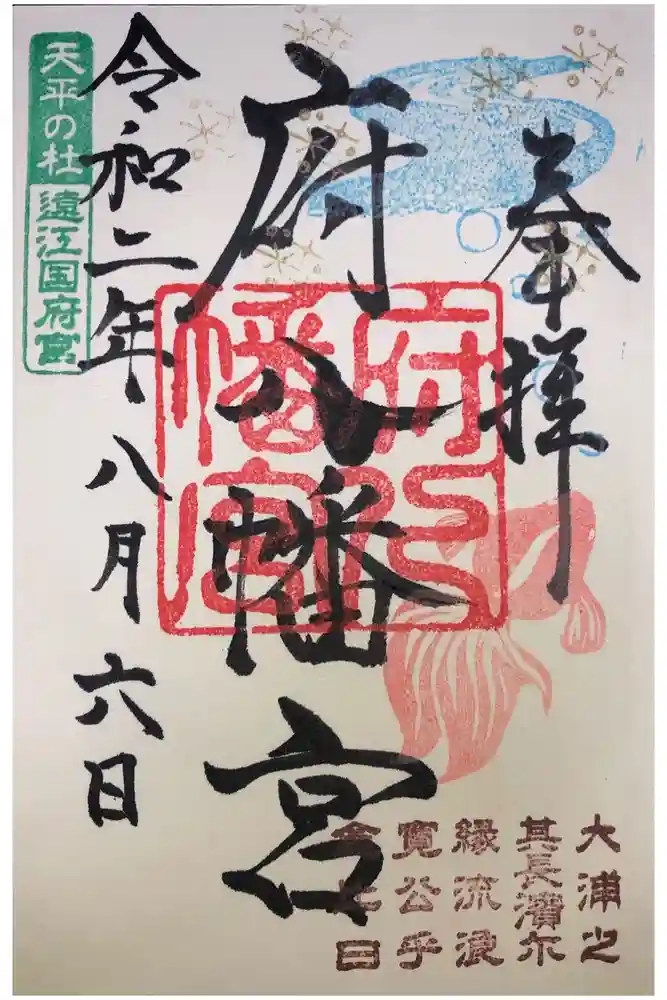 奉拝
府八幡宮
令和二年八月六日
天平の杜
遠江国府宮
府八
幡宮
大浦之
其長濱尓
縁流浪
寛公乎
念比日